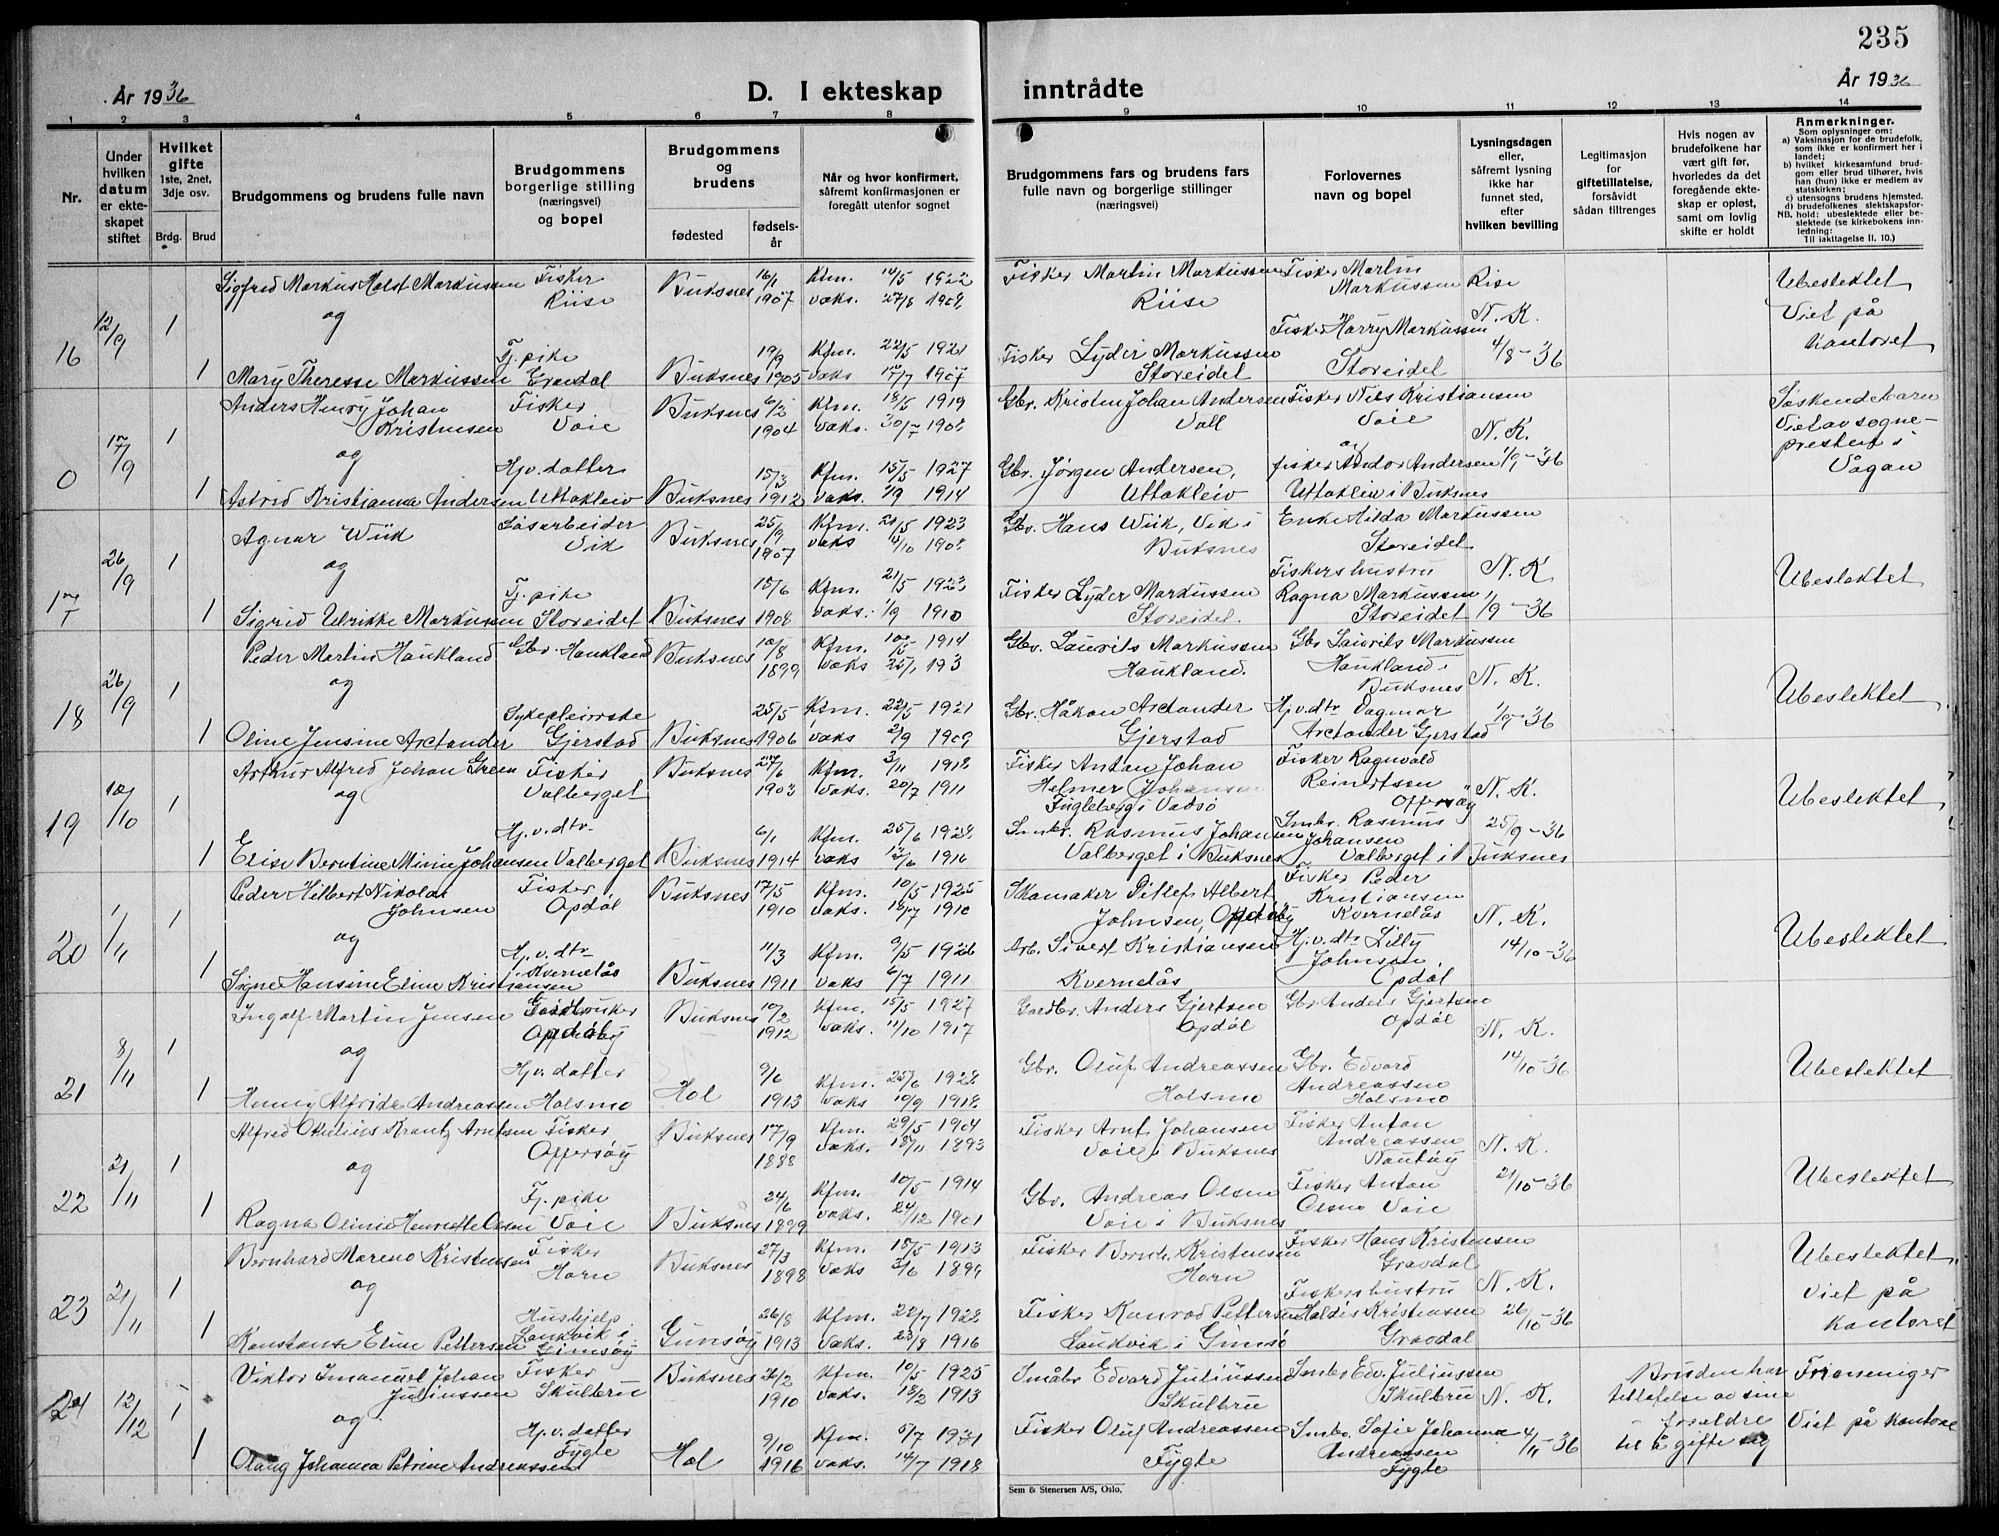 235
År 1936
D. I ekteskap inntrådte
År 1936
1 2 3 4 5 6 7 8 9 10 11 12 13 14
Nr.
Under hvilken datum er ekteskapet stiftet
Hvilket gifte 1ste, 2net, 3dje osv.
Brdg. Brud
Brudgommens og brudens fulle navn
Brudgommens borgerlige stilling (næringsvei) og bopel
Brudgommens og brudens
fødested fødselsår
Når og hvor konfirmert, såfremt konfirmasjonen er foregått utenfor sognet
Brudgommens fars og brudens fars fulle navn og borgerlige stillinger (næringsvei)
Forlovernes navn og bopel
Lysningsdagen eller, såfremt lysning ikke har funnet sted, efter hvilken bevilling
Legitimasjon for giftetillatelse, forsåvidt sådan tiltrenges
Hvis nogen av brudefolkene har vært gift før, hvorledes da det foregående ekteskap er opløst, samt om lovlig skifte er holdt
Anmerkninger.
Som oplysninger om:
a) Vaksinasjon for de brudefolk, som ikke er konfirmert her i landet;
b) hvilket kirkesamfund brudgom eller brud tilhører, hvis han (hun) ikke er medlem av statskirken;
c) utensogns brudens hjemsted.
d) brudefolkenes slektskapsforhold: ubeslektede eller beslektede (se kirkebokens innledning:
NB.
Til iakttagelse II. 10.)
16 12/9 1 Sigfred Markus Holst Markussen Fisker Riise Buksnes 16/1 1907 Kfm. 14/5 1922 vaks. 27/8 1908 Fisker Martin Markussen Riise Fisker Martin Markussen Rise
og N. K. 4/8-36 Ubeslektet Viet på kontoret
1 Mary Therese Markussen Tj. pike Gravdal Buksnes 19/9 1905 Kfm. 22/5 1921 vaks 17/7 1907 Fisker Lyder Markussen Storeidet Fisker Harry Markussen Storeidet
0 17/9 1 Anders Henry Johan Kristensen Fisker Voie Buksnes 6/3 1904 Kfm. 18/5 1919 vaks. 30/7 1908 Gbr. Kristen Johan Andersen Voll Fisker Nils Kristiansen Voie
og N. K. 1/9-36 Søskendebarn Viet av sognepresten i Vågan
1 Astrid Kristianna Andersen Hj.v. datter Uttakleiv Buksnes 15/3 1912 Kfm. 15/5 1927 vaks. 1/9 1914 Gbr. Jørgen Andersen, Uttakleiv fisker Andor Andersen Uttakleiv i Buksnes
17 26/9 1 Agnar Wiik Løsarbeider Vik Buksnes 25/9 1907 Kfm. 21/5 1923 vaks 4/10 1908 Gbr. Hans Wiik, Vik i Buksnes Enke Hilda Markussen Storeidet
og N. K. 1/9-36 Ubeslektet
1 Sigrid Ulrikke Markussen Tj. pike Storeidet Buksnes 15/6 1908 Kfm. 21/5 1923 vaks. 1/9 1910 Fisker Lyder Markussen Storeidet. Fiskershustru Ragna Markussen Storeidet
18 26/9 1 Peder Martin Haukland Gbr. Haukland Buksnes 10/8 1899 Kfm. 10/5 1914 vaks 25/1 193 Gbr. Laurits Markussen Haukland. Gbr Laurits Markussen Haukland i Buksnes
og N. K. 1/9-36 Ubeslektet
1 Oline Jensine Arctander Sykepleierske Gjerstad Buksnes 25/5 1906 Kfm. 22/5 1921 vaks 2/9 1909 Gbr. Håkon Arctander Gjerstad Hj.v.dtr Dagmar Arctander Gjerstad
19 10/10 1 Arthur Alfred Johan Green Fisker Valberget Buksnes 27/6 1903 Kfm. 3/11 1918 Vaks. 20/7 1911 Fisker Antan Johan Helmer Johansen Fugleberg i Vadsø Fisker Ragnvald Reinertsen Offersøy
og N. K. 25/9-36 Ubeslektet
1 Elise Berntine Minie Johansen Hj.v.dtr Valberget Buksnes 6/1 1914 Kfm. 25/6 1928 vaks 12/6 1916 Småbr. Rasmus Johansen Valberget i Buksnes Småbr. Rasmus Johansen Valberget i Buksnes
20 1/11 1 Peder Hilbert Nikolai Johnsen Fisker Opdøl Buksnes 17/5 1910 Kfm. 10/5 1925 vaks. 18/7 1910 Skomaker Ditlef Albert Johnsen, Fisker Peder Kristiansen Kvernelås
og N. K. 14/10-36 Ubeslektet
1 Signe Hansine Eline Kristiansen Hj.v.dtr Kvernelås Buksnes 11/3 1911 Kfm. 9/5 1926 vaks 6/7 1911 Arb. Sivert Kristiansen Kvernelås Hj.v.dtr Lilly Johnsen Opdøl
21 8/11 1 Ingolf Martin Jensen Gårdbruker Buksnes 10/2 1912 Kfm. 15/5 1927 vaks. 11/10 1917 Gardbr. Anders Gjertsen Opdøl Gbr Anders Gjertsen Opdøl
og N. K. 14/10-36 Ubeslektet
1 Henny Alfrida Andreassen Hj.v. datter Holsmo Hol 9/6 1913 Kfm. 25/6 1928 vaks 10/9 1918 Gbr. Oluf Andreassen Holsmo Gbr. Edvard Andreassen Holsmo
22 21/11 1 Alfred Otilius Krantz Arntsen Fisker Offersøy Buksnes 17/9 1888 Kfm. 29/5 1904 vaks. 18/11 1893 Fisker Arnt Johansen Voie i Buksnes Fisker Anton Andreassen Nautøy
og N. K. 21/10-36 Ubeslektet
1 Ragna Olinie Henriette Olsen Tj. pike Voie Buksnes 24/6 1899 Kfm. 10/5 1914 vaks. 24/12 1901 Gbr. Andreas Olsen Voie i Buksnes Fisker Anton Olsen Voie
23 21/11 1 Bernhard Mareno Kristensen Fisker Horn Buksnes 27/3 1898 Kfm. 15/5 1913 vaks 3/6 1899 Fisker Bernh. Kristensen Horn Fisker Hans Kristensen Gravdal
og N. K. 26/10-36 Ubeslektet. Viet på kontoret
1 Konstanse Eline Pettersen Hushjelp Laukvik i Gimsøy Gimsøy 26/8 1913 Kfm. 22/7 1928 Vaks. 23/8 1916 Fisker Konrad Pettersen Laukvik i Gimsø Fiskershustru Haldis Kristensen Gravdal
24 12/12 1 Viktor Imanuel Johan Juliussen Fisker Skulbru Buksnes 1910 Kfm. 10/5 1925 vaks. 18/2 1913 Småbr Edvard Juliussen Skulbru Småbr Edv. Juliussen Skulbru
og N. K. 4/11-36 Bruden har tillatelse av sine foreldre til å gifte sig Tremenniger Viet på kontoret
1 Olaug Johanna Petrine Andreassen Hj.v. datter Fygle Hol 9/10 1916 Kfm. 5/7 1931 vaks. 14/7 1918 Fisker Oluf Andreassen Fygle Småbr. Sofie Johanna Andreassen Fygle
Sem & Stenersen A/S, Oslo.